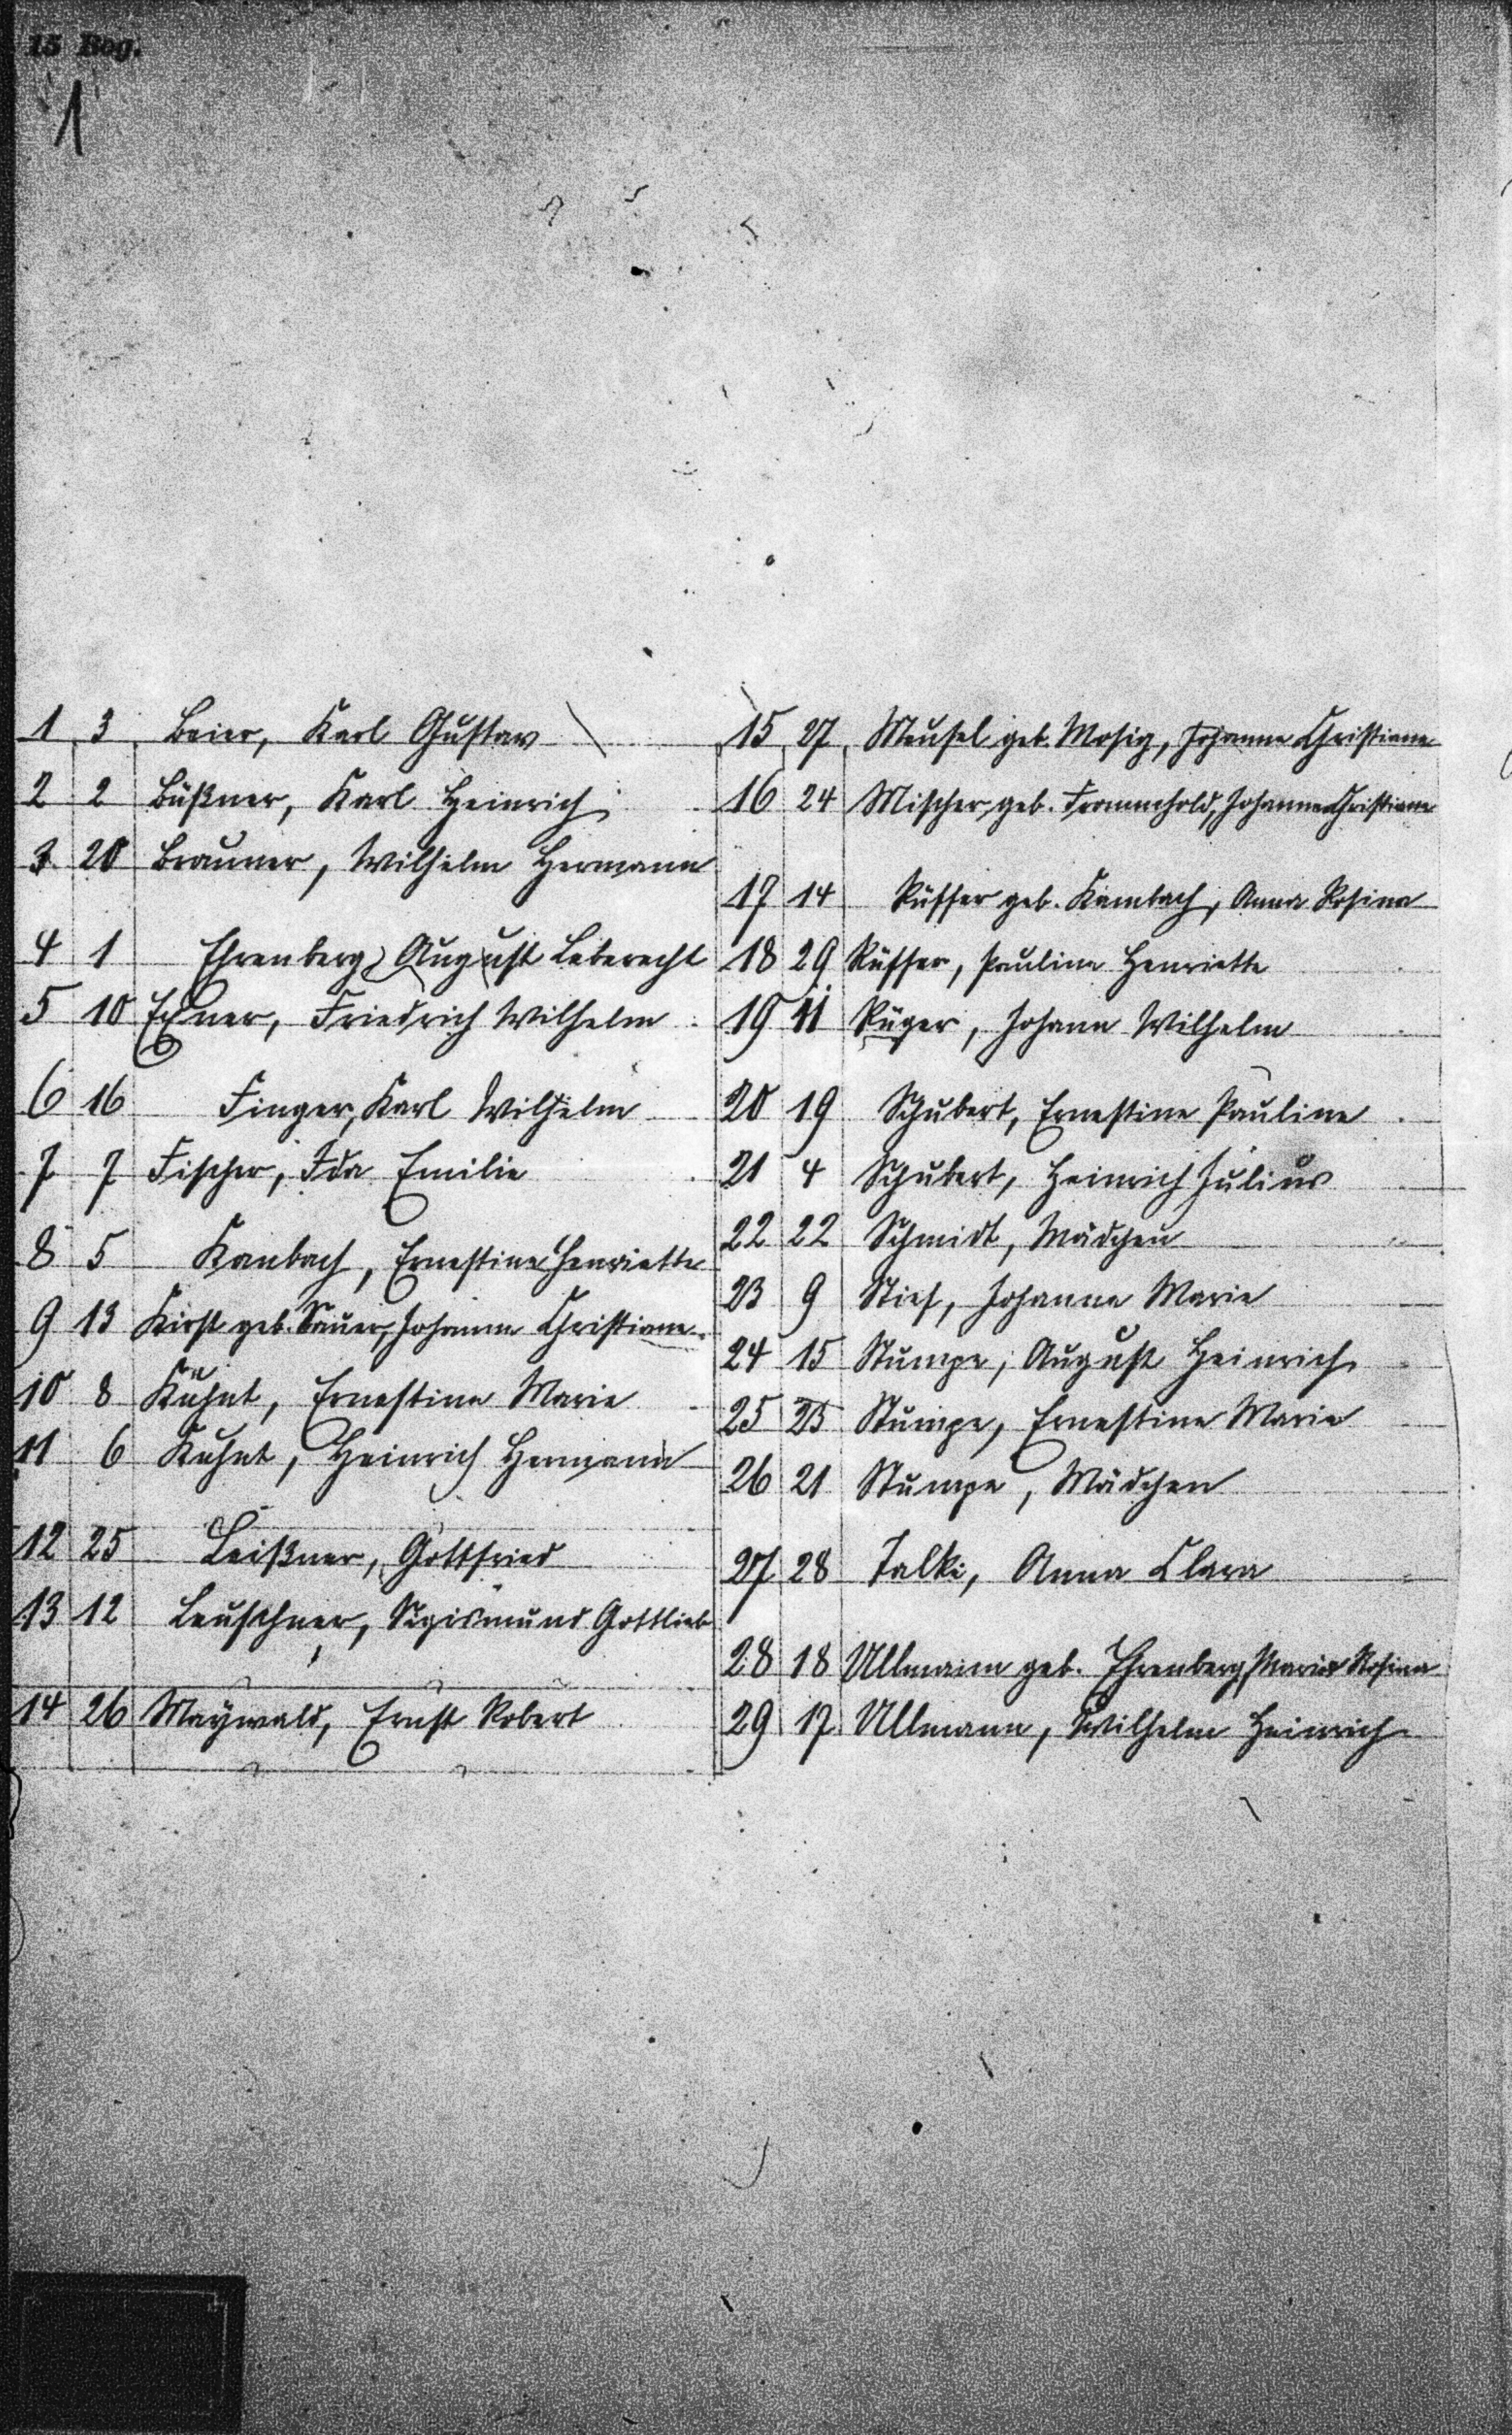 15 Bog.
1
1 3 Beier, Karl Gustav
2 2 Büßner, Karl Heinrich
3 20 Brauner, Wilhelm Hermann
4 1 Ehrenberg, August Leberecht
5 10 Exner, Friedrich Wilhelm
6 16 Finger, Karl Wilhelm
7 7 Fischer, Ida Emilie
8 5 Kanbach, Ernestine Henriette
9 13 Kirst geb. Sauer, Johanne Christiane
10 8 Kühnt, Ernestine Marie
11 6 Kuhnt, Heinrich Hermann
12 25 Leißner, Gottfried
13 12 Leuschner, Sigismund Gottlieb
14 26 Maywald, Ernst Robert
15 27 Meusel geb. Mosig, Johanne Christiane
16 24 Mischer geb. Frommhold, Johanne Christiane
17 14 Rüffer geb. Kambach, Anna Rosina
18 29 Rüffer, Pauline Henriette
19 11 Rüger, Johann Wilhelm
20 19 Schubert, Ernestine Pauline
21 4 Schubert, Heinrich Julius
22 22 Schmidt, Mädchen
23 9 Stief, Johanne Marie
24 15 Stumpe, August Heinrich
25 23 Stumpe, Ernestine Marie
26 21 Stumpe, Mädchen
27 28 Talke, Anna Clara
28 18 Ullmann geb. Ehrenberg, Maria Rosina
29 17 Ullmann, Wilhelm Heinrich